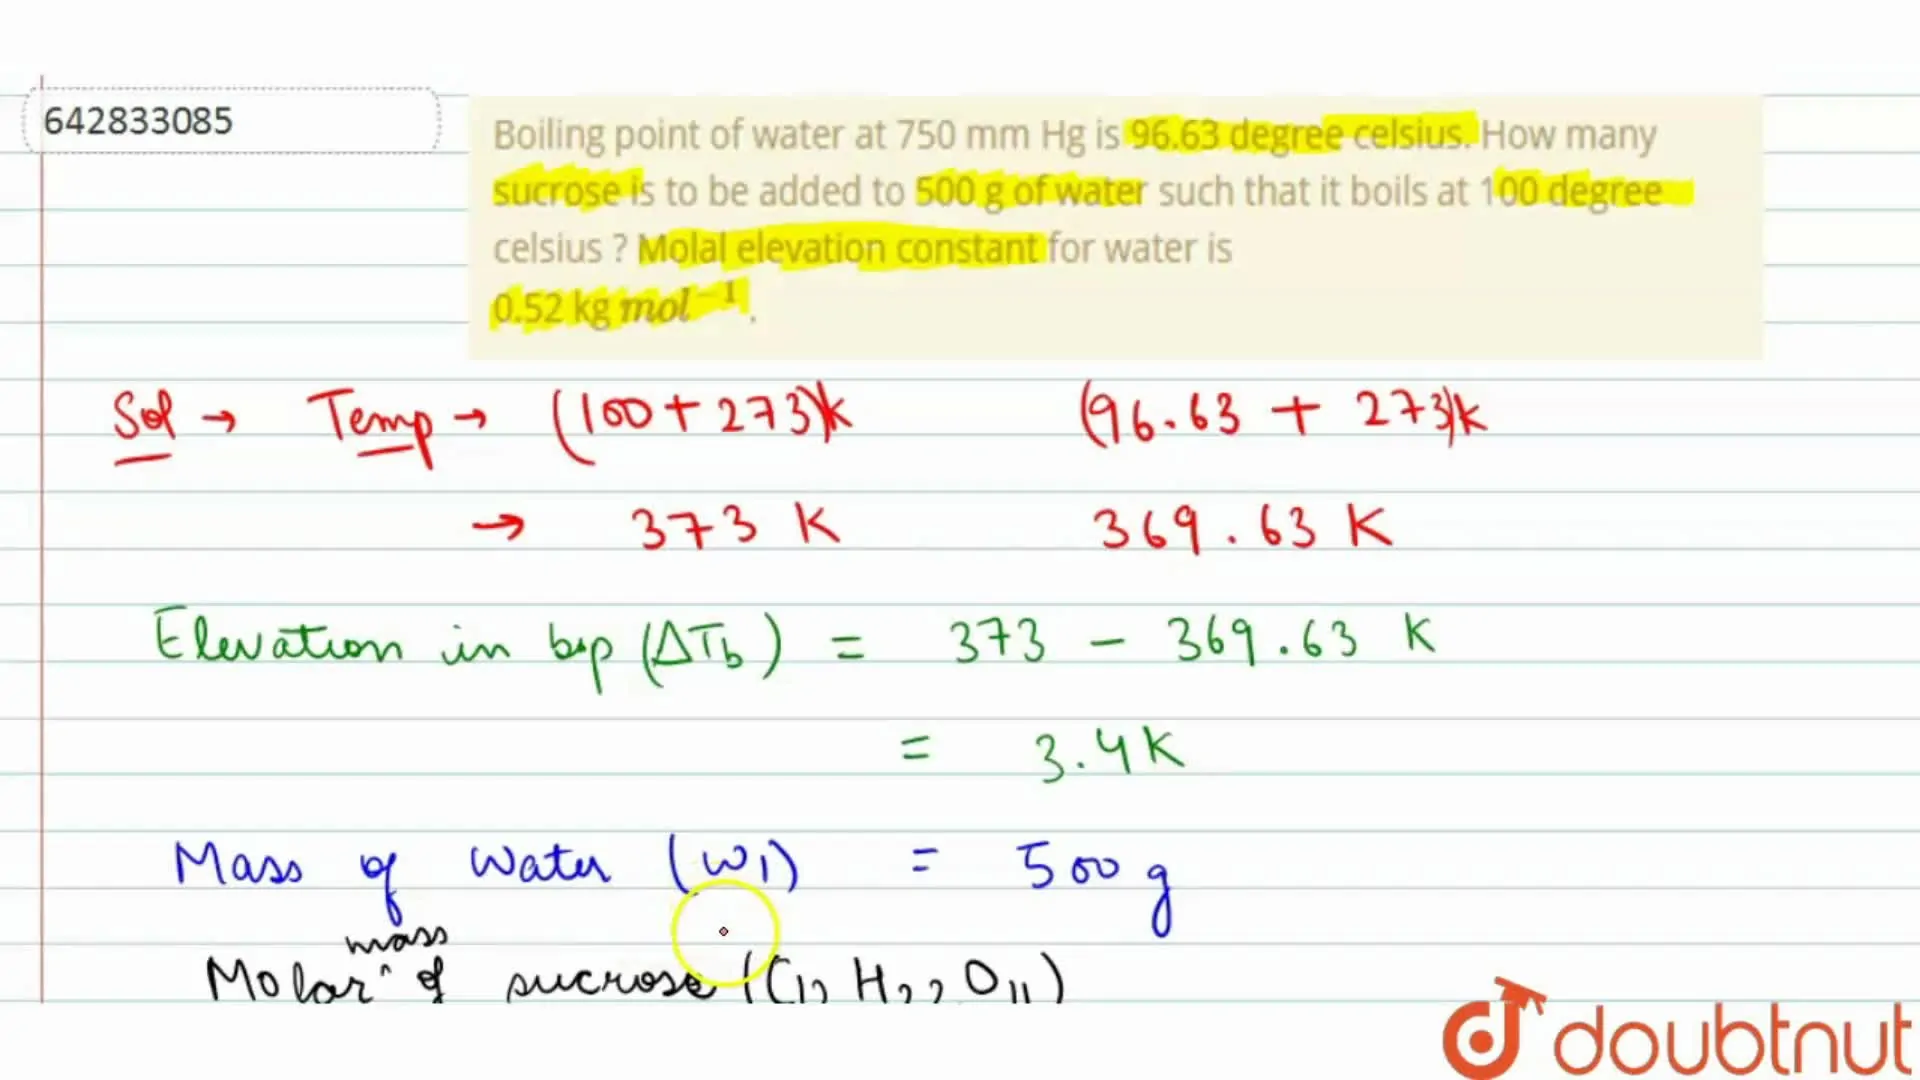 642833085
Boiling point of water at 750 mm Hg is 96.63 degree celsius. How many
sucrose is to be added to 500 g of water such that it boils at 100 degree
celsius ? Molal elevation constant for water is
0.52 kg mol⁻¹.
Sol → Temp → (100 + 273)k (96.63 + 273)k
→ 373 K 369.63 K
Elevation in b.p (ΔTb) = 373 - 369.63 K
= 3.4 K
Mass of water (w1) = 500 g
mass
Molar ^ of sucrose (C12 H22 O11)
doubtnut